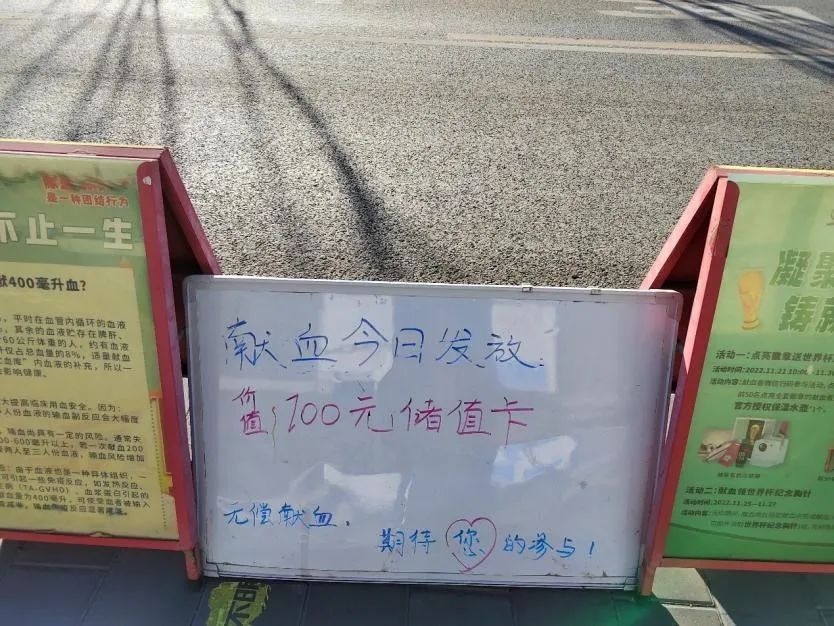 是一种团结行为
不止一生
献400毫升血?
平时在血管内循环的血液
其余的血液贮存在脾肝、
60公斤体重的人,约有血液
仅占总血量的8%,适量献血
内血液的补充,所以一
影响健康。
大提高临床用血安全。因为:
人份血液的输血副反应会大幅度
输血尚具有一定的风险。通常失
若一次献血200
两人至三人份血液,输血风险增加
由于血液也是一种异体组织,一
可引起一些免疫反应,如发热反应、
病(TA-GVHD)、血浆蛋白引起的
血量为400毫升,可使受血者被输入
献血今日发放
价值:100元储值卡
无偿献血,
期待您的参与!
凝聚
铸就
活动一:点亮徽章送世界杯
活动时间:2022.11.21
活动内容:
官方授权保温水壶
活动二:献血领世界杯纪念胸针
活动时间:2022.11.25—11.27
活动内容:
世界杯纪念胸针